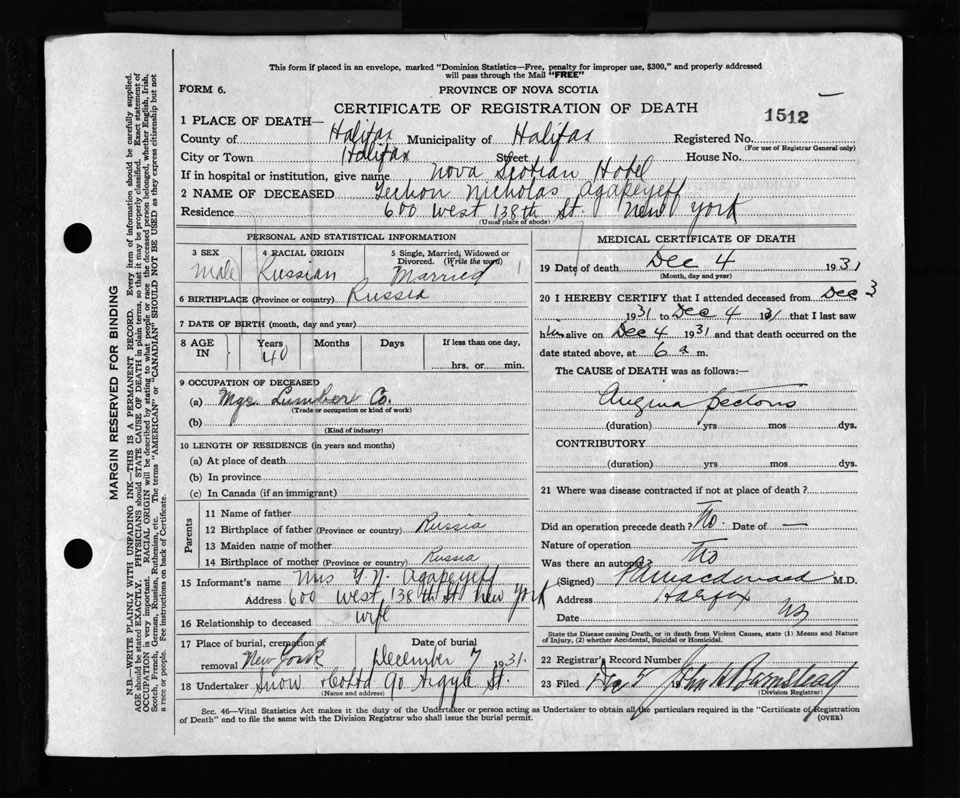 This form if placed in an envelope, marked "Dominion Statistics—Free, penalty for improper use, $300," and properly addressed
will pass through the Mail "FREE"
FORM 6.
PROVINCE OF NOVA SCOTIA
CERTIFICATE OF REGISTRATION OF DEATH
1512
1 PLACE OF DEATH—
County of Halifax Municipality of Halifax Registered No.
(For use of Registrar General only)
City or Town Halifax Street House No.
If in hospital or institution, give name Nova Scotian Hotel
2 NAME OF DECEASED Nicholas Agapeyeff
Residence 600 West 138th St. New York
(Usual place of abode)
PERSONAL AND STATISTICAL INFORMATION
3 SEX 4 RACIAL ORIGIN 5 Single, Married, Widowed or
Divorced. (Write the word)
Male Russian Married
6 BIRTHPLACE (Province or country) Russia
7 DATE OF BIRTH (month, day and year)
8 AGE IN Years Months Days If less than one day,
40 hrs. or min.
9 OCCUPATION OF DECEASED
(a) Mgr. Lumber Co.
(Trade or occupation or kind of work)
(b)
(Kind of industry)
10 LENGTH OF RESIDENCE (in years and months)
(a) At place of death
(b) In province
(c) In Canada (if an immigrant)
Parents
11 Name of father
12 Birthplace of father (Province or country) Russia
13 Maiden name of mother
14 Birthplace of mother (Province or country) Russia
15 Informant's name Mrs Y. N. Agapeyeff
Address 600 West 138th St New York
16 Relationship to deceased wife
17 Place of burial, cremation or Date of burial
removal New York December 7 1931.
18 Undertaker Snow & Co Ltd 90 Argyle St.
(Name and address)
MEDICAL CERTIFICATE OF DEATH
19 Date of death Dec 4 1931
(Month, day and year)
20 I HEREBY CERTIFY that I attended deceased from Dec 3
1931 to Dec 4 1931 that I last saw
him alive on Dec 4 1931 and that death occurred on the
date stated above, at 6 a m.
The CAUSE of DEATH was as follows:—
Angina Pectoris
(duration) yrs mos dys.
CONTRIBUTORY
(duration) yrs mos dys.
21 Where was disease contracted if not at place of death?
Did an operation precede death? No. Date of —
Nature of operation
Was there an autopsy? No
(Signed) Macdonald M.D.
Address Halifax
Date NS
State the Disease causing Death, or in death from Violent Causes, state (1) Means and Nature
of Injury, (2) whether Accidental, Suicidal or Homicidal.
22 Registrar's Record Number
23 Filed Dec 7 John Barnstead
(Division Registrar)
Sec. 46—Vital Statistics Act makes it the duty of the Undertaker or person acting as Undertaker to obtain all the particulars required in the "Certificate of Registration
of Death" and to file the same with the Division Registrar who shall issue the burial permit.
(OVER)
MARGIN RESERVED FOR BINDING
N.B.—WRITE PLAINLY WITH UNFADING INK—THIS IS A PERMANENT RECORD. Every item of information should be carefully supplied.
AGE should be stated EXACTLY. PHYSICIANS should STATE CAUSE OF DEATH in plain terms, so that it may be properly classified. Exact statement of
OCCUPATION is very important. RACIAL ORIGIN will be described by stating to what people or race the deceased person belonged, whether English, Irish,
Scotch, French, German, Russian, Ruthenian, etc. The terms "AMERICAN" or "CANADIAN" SHOULD NOT BE USED as they express citizenship but not
a race or people. See instructions on back of Certificate.